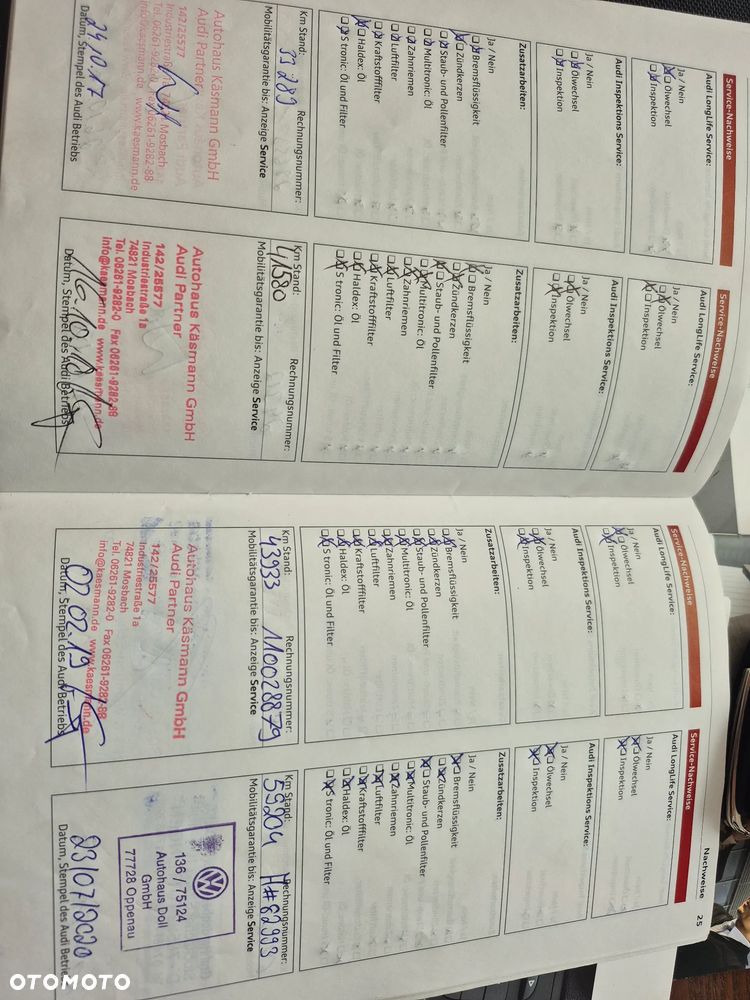 Service-Nachweise
Audi LongLife Service:
Ja / Nein
Ölwechsel
Inspektion
Audi Inspektions Service:
Ja / Nein
Ölwechsel
Inspektion
Zusatzarbeiten:
Ja / Nein
Bremsflüssigkeit
Zündkerzen
Staub- und Pollenfilter
Multitronic: Öl
Zahnriemen
Luftfilter
Kraftstofffilter
Haldex: Öl
S tronic: Öl und Filter
Km Stand: Rechnungsnummer:
39 289
Mobilitätsgarantie bis: Anzeige Service
Autohaus Käsmann GmbH
Audi Partner
142/25577
Mosbach
06261-9282-88
info@kaesmann.de www.kaesmann.de
24.10.17
Datum, Stempel des Audi Betriebs
Service-Nachweise
Audi LongLife Service:
Ja / Nein
Ölwechsel
Inspektion
Audi Inspektions Service:
Ja / Nein
Ölwechsel
Inspektion
Zusatzarbeiten:
Ja / Nein
Bremsflüssigkeit
Zündkerzen
Staub- und Pollenfilter
Multitronic: Öl
Zahnriemen
Luftfilter
Kraftstofffilter
Haldex: Öl
S tronic: Öl und Filter
Km Stand: Rechnungsnummer:
41580
Mobilitätsgarantie bis: Anzeige Service
Autohaus Käsmann GmbH
Audi Partner
142/25577
Industriestraße 1a
74821 Mosbach
Tel. 06261-9282-0 Fax 06261-9282-88
info@kaesmann.de www.kaesmann.de
16.10.18
Datum, Stempel des Audi Betriebs
Service-Nachweise
Audi LongLife Service:
Ja / Nein
Ölwechsel
Inspektion
Audi Inspektions Service:
Ja / Nein
Ölwechsel
Inspektion
Zusatzarbeiten:
Ja / Nein
Bremsflüssigkeit
Zündkerzen
Staub- und Pollenfilter
Multitronic: Öl
Zahnriemen
Luftfilter
Kraftstofffilter
Haldex: Öl
S tronic: Öl und Filter
Km Stand: Rechnungsnummer:
43933 110028879
Mobilitätsgarantie bis: Anzeige Service
Autohaus Käsmann GmbH
Audi Partner
142/25577
Industriestraße 1a
74821 Mosbach
Tel. 06261-9282-0 Fax 06261-9282-88
info@kaesmann.de www.kaesmann.de
07.02.19
Datum, Stempel des Audi Betriebs
Nachweise 25
Service-Nachweise
Audi LongLife Service:
Ja / Nein
Ölwechsel
Inspektion
Audi Inspektions Service:
Ja / Nein
Ölwechsel
Inspektion
Zusatzarbeiten:
Ja / Nein
Bremsflüssigkeit
Zündkerzen
Staub- und Pollenfilter
Multitronic: Öl
Zahnriemen
Luftfilter
Kraftstofffilter
Haldex: Öl
S tronic: Öl und Filter
Km Stand: Rechnungsnummer:
59204 H#82993
Mobilitätsgarantie bis: Anzeige Service
136 / 75124
Autohaus Doll
GmbH
77728 Oppenau
23/07/2020
Datum, Stempel des Audi Betriebs
OTOMOTO